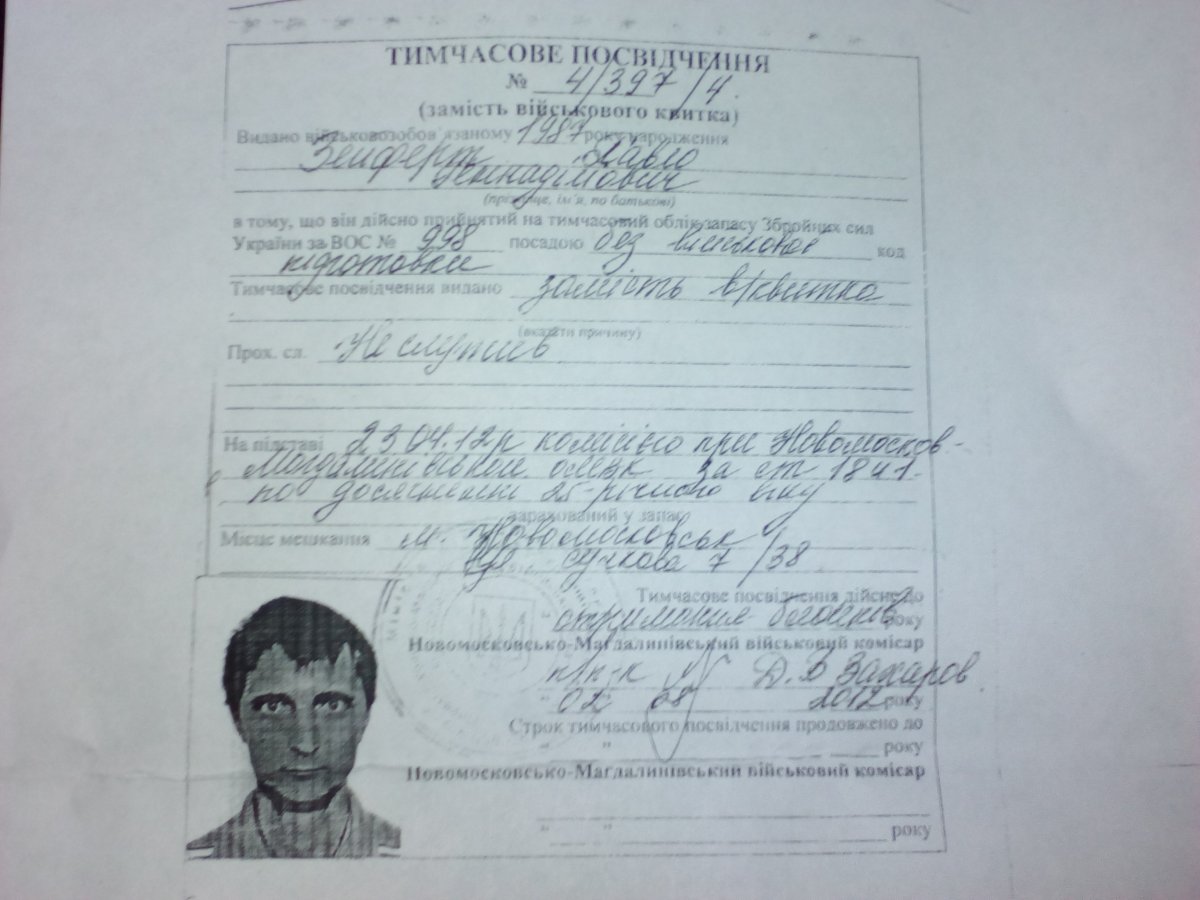 ТИМЧАСОВЕ ПОСВІДЧЕННЯ
№ 4/397/4
(замість військового квитка)
Видано військовозобов'язаному 1987 року народження
Зейферт Павло
Геннадійович
(прізвище, ім'я, по батькові)
в тому, що він дійсно прийнятий на тимчасовий облік запасу Збройних сил
України за ВОС № 998 посадою без військової код
підготовки
Тимчасове посвідчення видано замість в/квитка
(вказати причину)
Прох. сл. Не служив
На підставі 23.04.12р комісією при Новомосков-
за ст 18 ч1.
по досягненні 25-річного віку
зарахований у запас
Місце мешкання м. Новомосковськ
вул. Сучкова 7/38
Тимчасове посвідчення дійсне до
отримання року
Новомосковсько-Магдалинівський військовий комісар
п/п-к Д.В Захаров
" 02 " 08 2012 року
Строк тимчасового посвідчення продовжено до
" " року
Новомосковсько-Магдалинівський військовий комісар
" " року